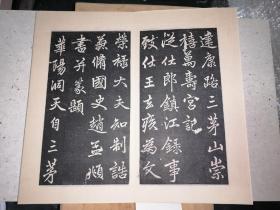 建康路三茅山崇
禧萬壽宮記
從仕郎鎮江錄事
致仕王去疾為文
榮祿大夫知制誥
兼脩國史趙孟頫
書并篆題
華陽洞天自三茅